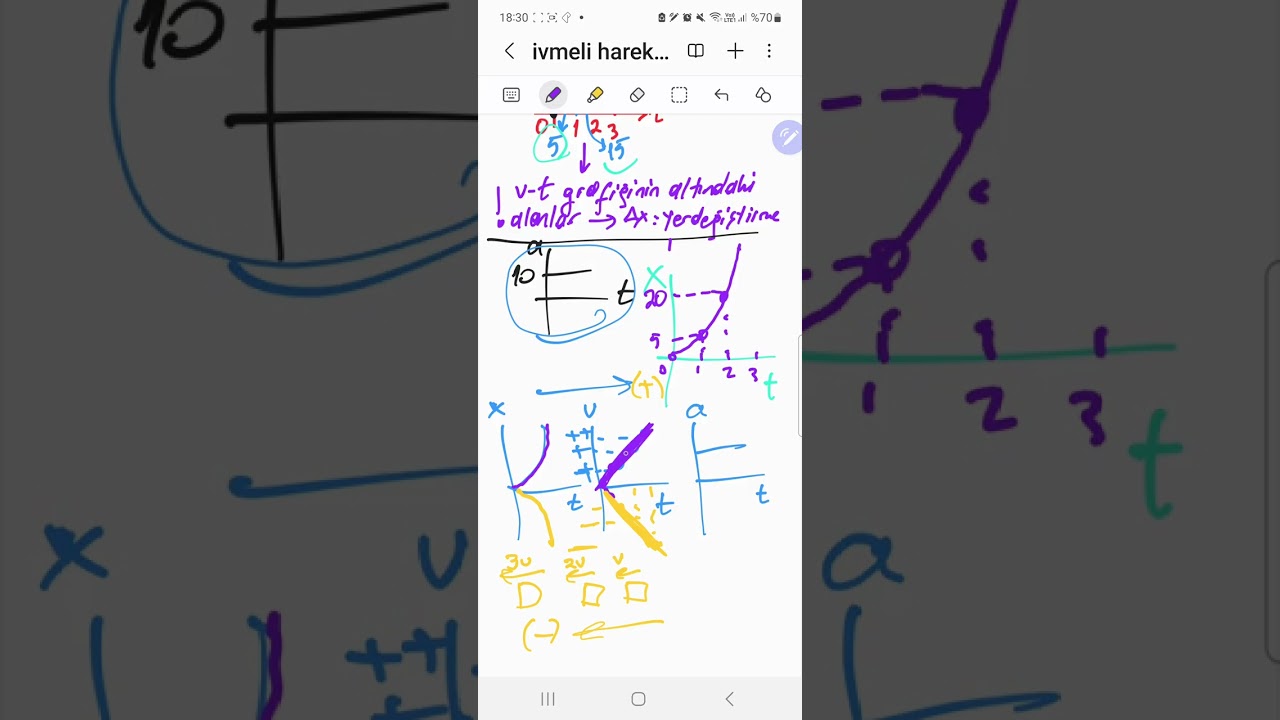 18:30 %70
ivmeli harek...
0 1 2 3 t
5 15
! v-t grafiğinin altındaki
alanlar → Δx: yerdeğiştirme
a
10
t
x
20
5
0 1 2 3 t
(+)
x v a
++
+
+
t t t
3v 2v v
(-)
10
1 2 3
t
x v a
++
+